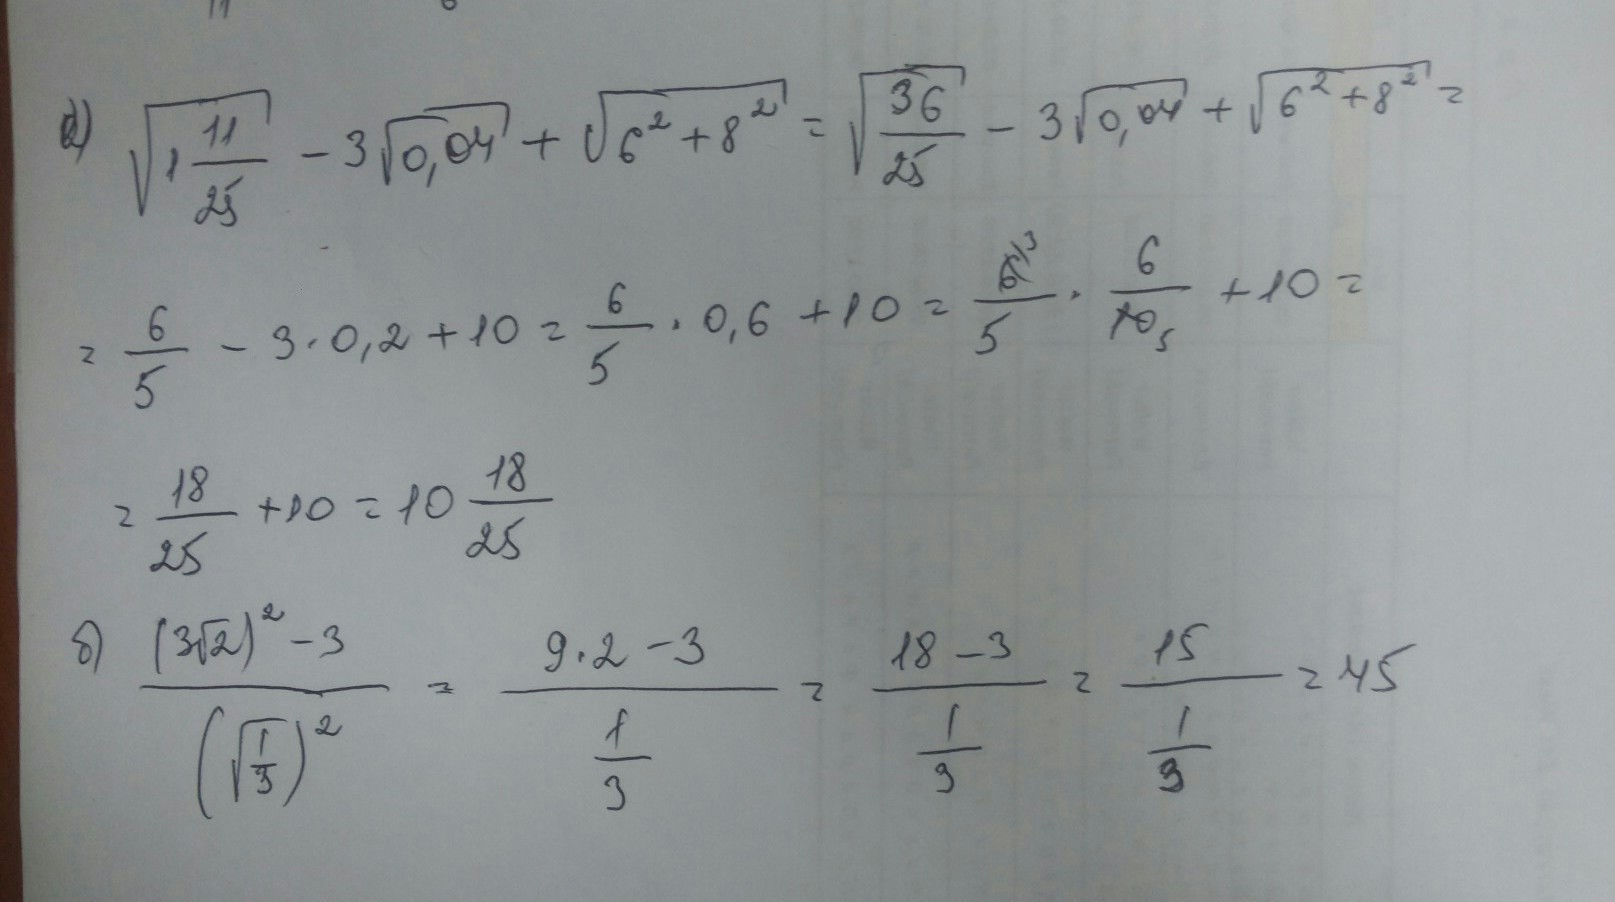 а) √(1 11/25) - 3√0,04 + √(6² + 8²) = √(36/25) - 3√0,04 + √(6² + 8²) =
= 6/5 - 3·0,2 + 10 = 6/5 · 0,6 + 10 = 6³/5 · 6/10₅ + 10 =
= 18/25 + 10 = 10 18/25
б) ((3√2)² - 3)/(√(1/3))² = (9·2 - 3)/(1/3) = (18 - 3)/(1/3) = 15/(1/3) = 45